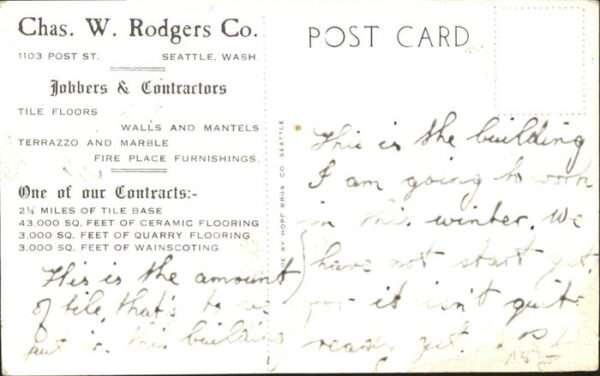 Chas. W. Rodgers Co.
1103 POST ST. SEATTLE, WASH.
Jobbers & Contractors
TILE FLOORS
WALLS AND MANTELS
TERRAZZO AND MARBLE
FIRE PLACE FURNISHINGS.
One of our Contracts:-
2¼ MILES OF TILE BASE
43,000 SQ. FEET OF CERAMIC FLOORING
3,000 SQ. FEET OF QUARRY FLOORING
3,000 SQ. FEET OF WAINSCOTING
This is the amount
of tile, that's to
in this building
BY HOPF BROS CO. SEATTLE
POST CARD
This is the building
I am going to work
in this winter. We
have not start yet,
for it isn't quite
ready yet.